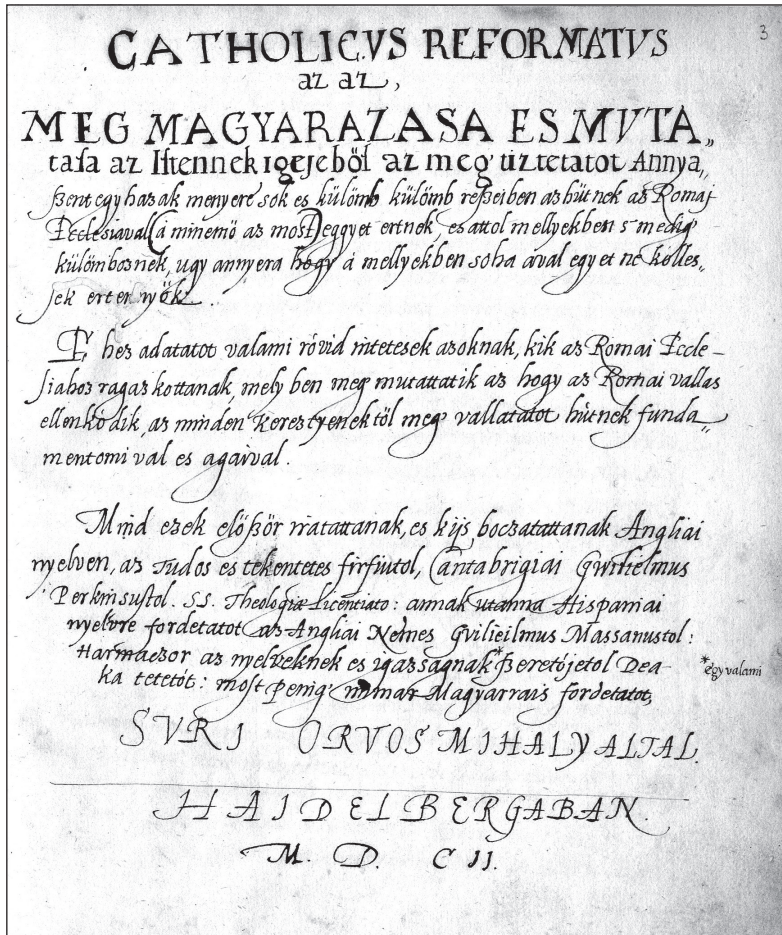 3
CATHOLICVS REFORMATVS
az az,
MEG MAGYARAZASA ES MVTA„
tasa az Istennek igejeböl az meg tiztetatot Annya„
ßent egy hazak menyere sok es külömb külömb reßeiben az hütnek az Romaj
Ecclesiaval (á minemö az most) eggyet ertnek, es attol mellyekben s medig
külömboznek, ugy annyera hogy á mellyekben soha aval egyet ne kölles„
jek erteniyök.
E, hez adatatot valami rövid intetesek azoknak, kik az Romai Eccle –
siahoz ragazkottanak, mely ben meg mutattatik az hogy az Romai vallas
ellenkö dik, az minden kereztyenektöl meg vallatatot hütnek funda„
mentomi val es agaival.
Mind ezek elößör irattattanak, es kijs boczatattanak Angliai
nyelven, az Tudos es tekentetes firfiutol, Cantabrigiai Gwilielmus
Perkinsustol. S.S. Theologiæ Licentiato: annak utanna Hispaniai
nyelvre fordetatot az Angliai Nemes Gvilieilmus Massanustol:
Harmaczor az nyelveknek es igazsagnak* ßeretöjetol Dea-
*egy valami
ka tetetöt: most penig immar Magyarrais fordetatot,
SVRI ORVOS MIHALY ALTAL.
HAIDELBERGABAN.
M. D. CII.